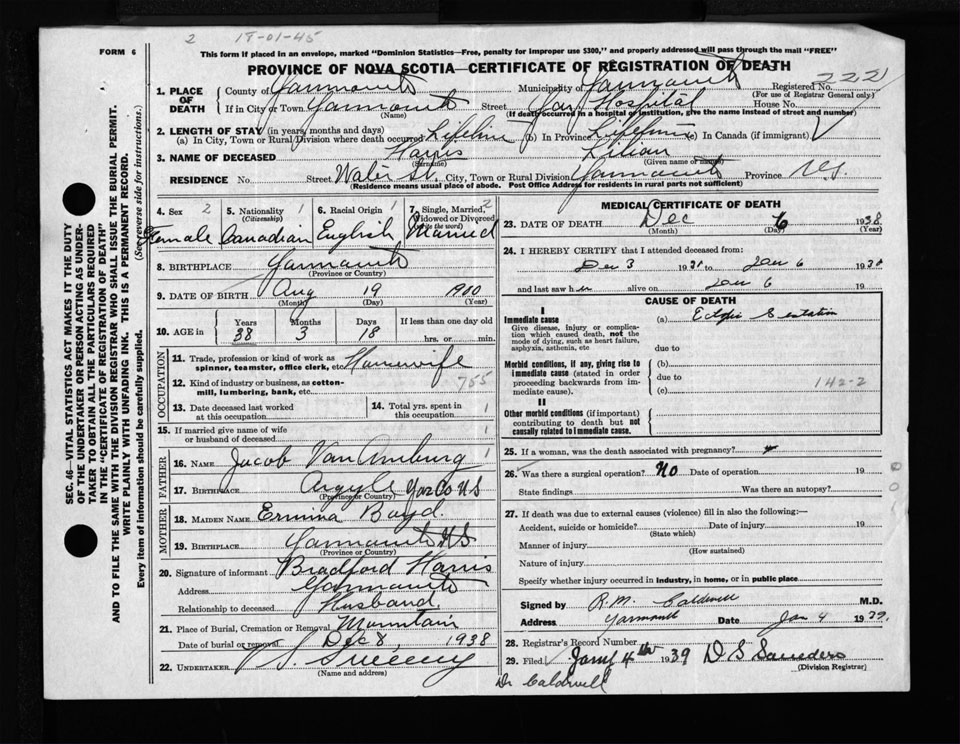 2 18-01-45
FORM 6
This form if placed in an envelope, marked "Dominion Statistics—Free, penalty for improper use $300," and properly addressed will pass through the mail "FREE"
PROVINCE OF NOVA SCOTIA—CERTIFICATE OF REGISTRATION OF DEATH
SEC. 46—VITAL STATISTICS ACT MAKES IT THE DUTY
OF THE UNDERTAKER OR PERSON ACTING AS UNDER-
TAKER TO OBTAIN ALL THE PARTICULARS REQUIRED
IN THE "CERTIFICATE OF REGISTRATION OF DEATH"
AND TO FILE THE SAME WITH THE DIVISION REGISTRAR WHO SHALL ISSUE THE BURIAL PERMIT.
WRITE PLAINLY WITH UNFADING INK. THIS IS A PERMANENT RECORD.
Every item of information should be carefully supplied. (See reverse side for instructions.)
1. PLACE OF DEATH
County of Yarmouth Municipality of Yarmouth Registered No. 2221
(For use of Registrar General only)
If in City or Town Yarmouth Street Yar. Hospital House No.
(Name) (If death occurred in a hospital or institution, give the name instead of street and number)
2. LENGTH OF STAY (in years, months and days)
(a) In City, Town or Rural Division where death occurred Lifetime (b) In Province Lifetime (c) In Canada (if immigrant)
3. NAME OF DECEASED Harris Lilian
(Surname) (Given name or names)
RESIDENCE No. Street Water St. City, Town or Rural Division Yarmouth Province N.S.
(Residence means usual place of abode. Post Office Address for residents in rural parts not sufficient)
4. Sex 2
Female
5. Nationality 1
(Citizenship)
Canadian
6. Racial Origin 1
English
7. Single, Married, 2
Widowed or Divorced
(write the word)
Married
8. BIRTHPLACE Yarmouth
(Province or Country)
9. DATE OF BIRTH Aug 19 1900
(Month) (Day) (Year)
10. AGE in Years Months Days If less than one day old
38 3 18 hrs. or min.
OCCUPATION
11. Trade, profession or kind of work as
spinner, teamster, office clerk, etc. Housewife
12. Kind of industry or business, as cotton- 755
mill, lumbering, bank, etc.
13. Date deceased last worked
at this occupation
14. Total yrs. spent in 1
this occupation
15. If married give name of wife 1
or husband of deceased
FATHER
16. NAME Jacob Van Amburg 1
17. BIRTHPLACE Argyle Yar Co NS
(Province or Country)
MOTHER
18. MAIDEN NAME Ermina Boyd.
19. BIRTHPLACE Yarmouth NS
(Province or Country)
20. Signature of informant Bradford Harris
Address Yarmouth
Relationship to deceased Husband.
21. Place of Burial, Cremation or Removal Mountain
Date of burial or removal Dec 8, 1938
22. UNDERTAKER Sweeny
(Name and address)
MEDICAL CERTIFICATE OF DEATH
23. DATE OF DEATH Dec 6 1938
(Month) (Day) (Year)
24. I HEREBY CERTIFY that I attended deceased from:
Dec 3 1938 to 6 1938
and last saw her alive on 6 19
CAUSE OF DEATH
I
Immediate cause (a) Ectopic Gestation
Give disease, injury or complica-
tion which caused death, not the
mode of dying, such as heart failure,
asphyxia, asthenia, etc due to
Morbid conditions, if any, giving rise to (b)
immediate cause (stated in order due to
proceeding backwards from im- (c) 142-2
mediate cause).
II
Other morbid conditions (if important)
contributing to death but not
causally related to immediate cause.
25. If a woman, was the death associated with pregnancy?
26. Was there a surgical operation? NO Date of operation 19
State findings Was there an autopsy?
27. If death was due to external causes (violence) fill in also the following:—
Accident, suicide or homicide? Date of injury 19
(State which)
Manner of injury
(How sustained)
Nature of injury
Specify whether injury occurred in industry, in home, or in public place
Signed by R.M. Caldwell M.D.
Address Yarmouth Date Jan 4 1939.
28. Registrar's Record Number
29. Filed Jany 4th 1939 D S Saunders
(Division Registrar)
Dr Caldwell